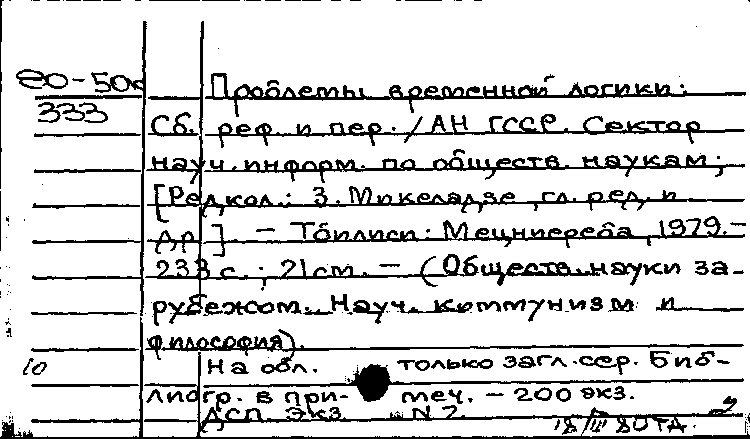 80-50
333
Проблемы временной логики:
Сб. реф. и пер. / АН ГССР. Сектор
науч. информ. по обществ. наукам;
[Редкол.: З. Микеладзе, гл. ред. и
др.] – Тбилиси: Мецниереба, 1979. –
233 с.; 21 см. – (Обществ. науки за-
рубежом. Науч. коммунизм и
философия).
На обл. только загл. сер. Биб-
10
лиогр. в при- меч. – 200 экз.
ДСП. Экз. N 2.